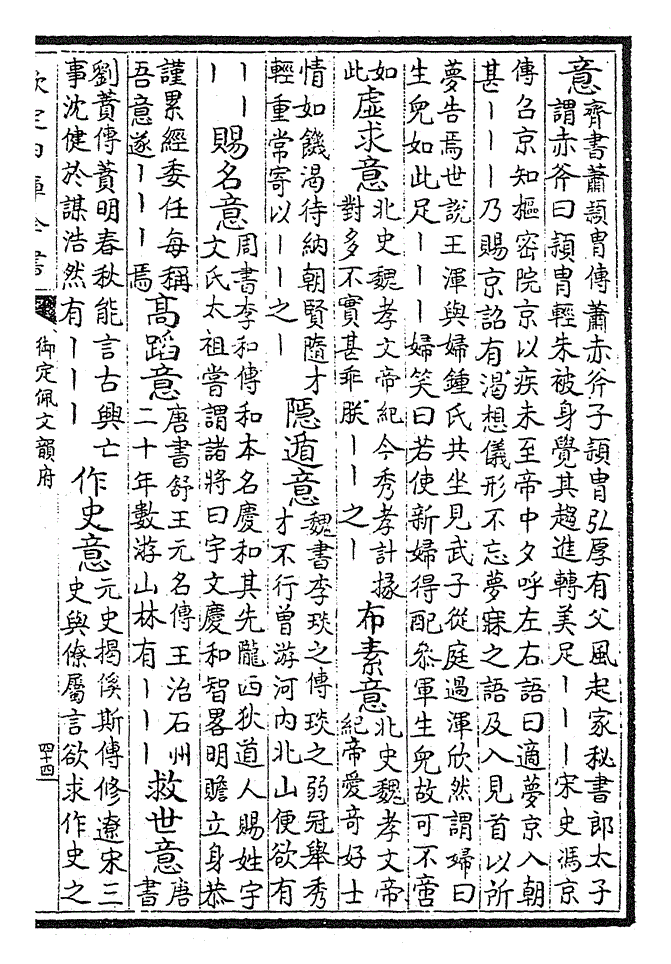 意
齊書蕭頴胄傳蕭赤斧子頴胄弘厚有父風起家秘書郎太子
謂赤斧曰頴胄輕朱被身覺其趨進轉美足丨丨丨宋史馮京
傳召京知樞密院京以疾未至帝中夕呼左右語曰適夢京入朝
甚丨丨丨乃賜京詔有渴想儀形不忘夢寐之語及入見首以所
夢告焉世說王渾與婦鍾氏共坐見武子從庭過渾欣然謂婦曰
生兒如此足丨丨丨婦笑曰若使新婦得配叅軍生兒故可不啻
如
此
虛求意
北史魏孝文帝紀今秀孝計掾
對多不實甚乖朕丨丨之丨
布素意
北史魏孝文帝
紀帝愛奇好士
情如饑渴待納朝賢隨才
輕重常寄以丨丨之丨
隠遁意
魏書李琰之傳琰之弱冠舉秀
才不行曾游河内北山便欲有
丨丨
丨
賜名意
周書李和傳和本名慶和其先隴西狄道人賜姓宇
文氏太祖嘗謂諸將曰宇文慶和智畧明贍立身恭
謹累經委任每稱
吾意遂丨丨丨焉
髙蹈意
唐書舒王元名傳王治石州
二十年數游山林有丨丨丨
救世意
唐
書
劉蕡傳蕡明春秋能言古興亡
事沈健於謀浩然有丨丨丨
作史意
元史揭傒斯傳修遼宋三
史與僚屬言欲求作史之
欽定四庫全書
御定佩文韻府
四十四